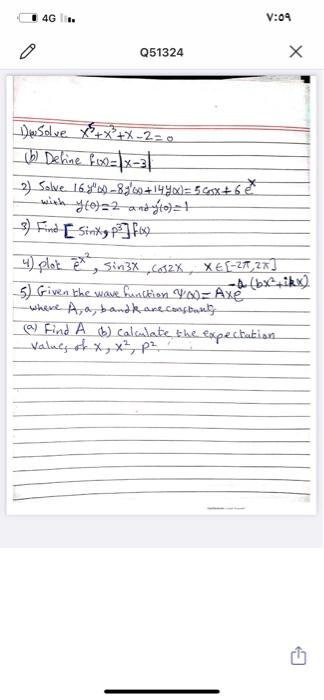 4G ٧:٥٩
Q51324
1) (a) Solve x⁵+x³+x-2=0
(b) Define f(x)=|x-3|
2) Solve 16y''(x)-8y'(x)+14y(x)=5cosx+6eˣ
with y(0)=2 and y'(0)=1
3) Find [sinx, p³]f(x)
4) plot e^-x², sin3x, cos2x, x∈[-2π,2π]
5) Given the wave function Ψ(x)=Axe^-a(bx²+ikx)
where A, a, b and k are constants
(a) Find A (b) calculate the expectation
values of x, x², p²